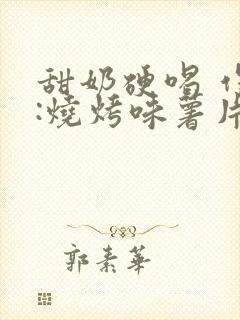 甜奶硬唱
:燒烤味薯片
郭素華